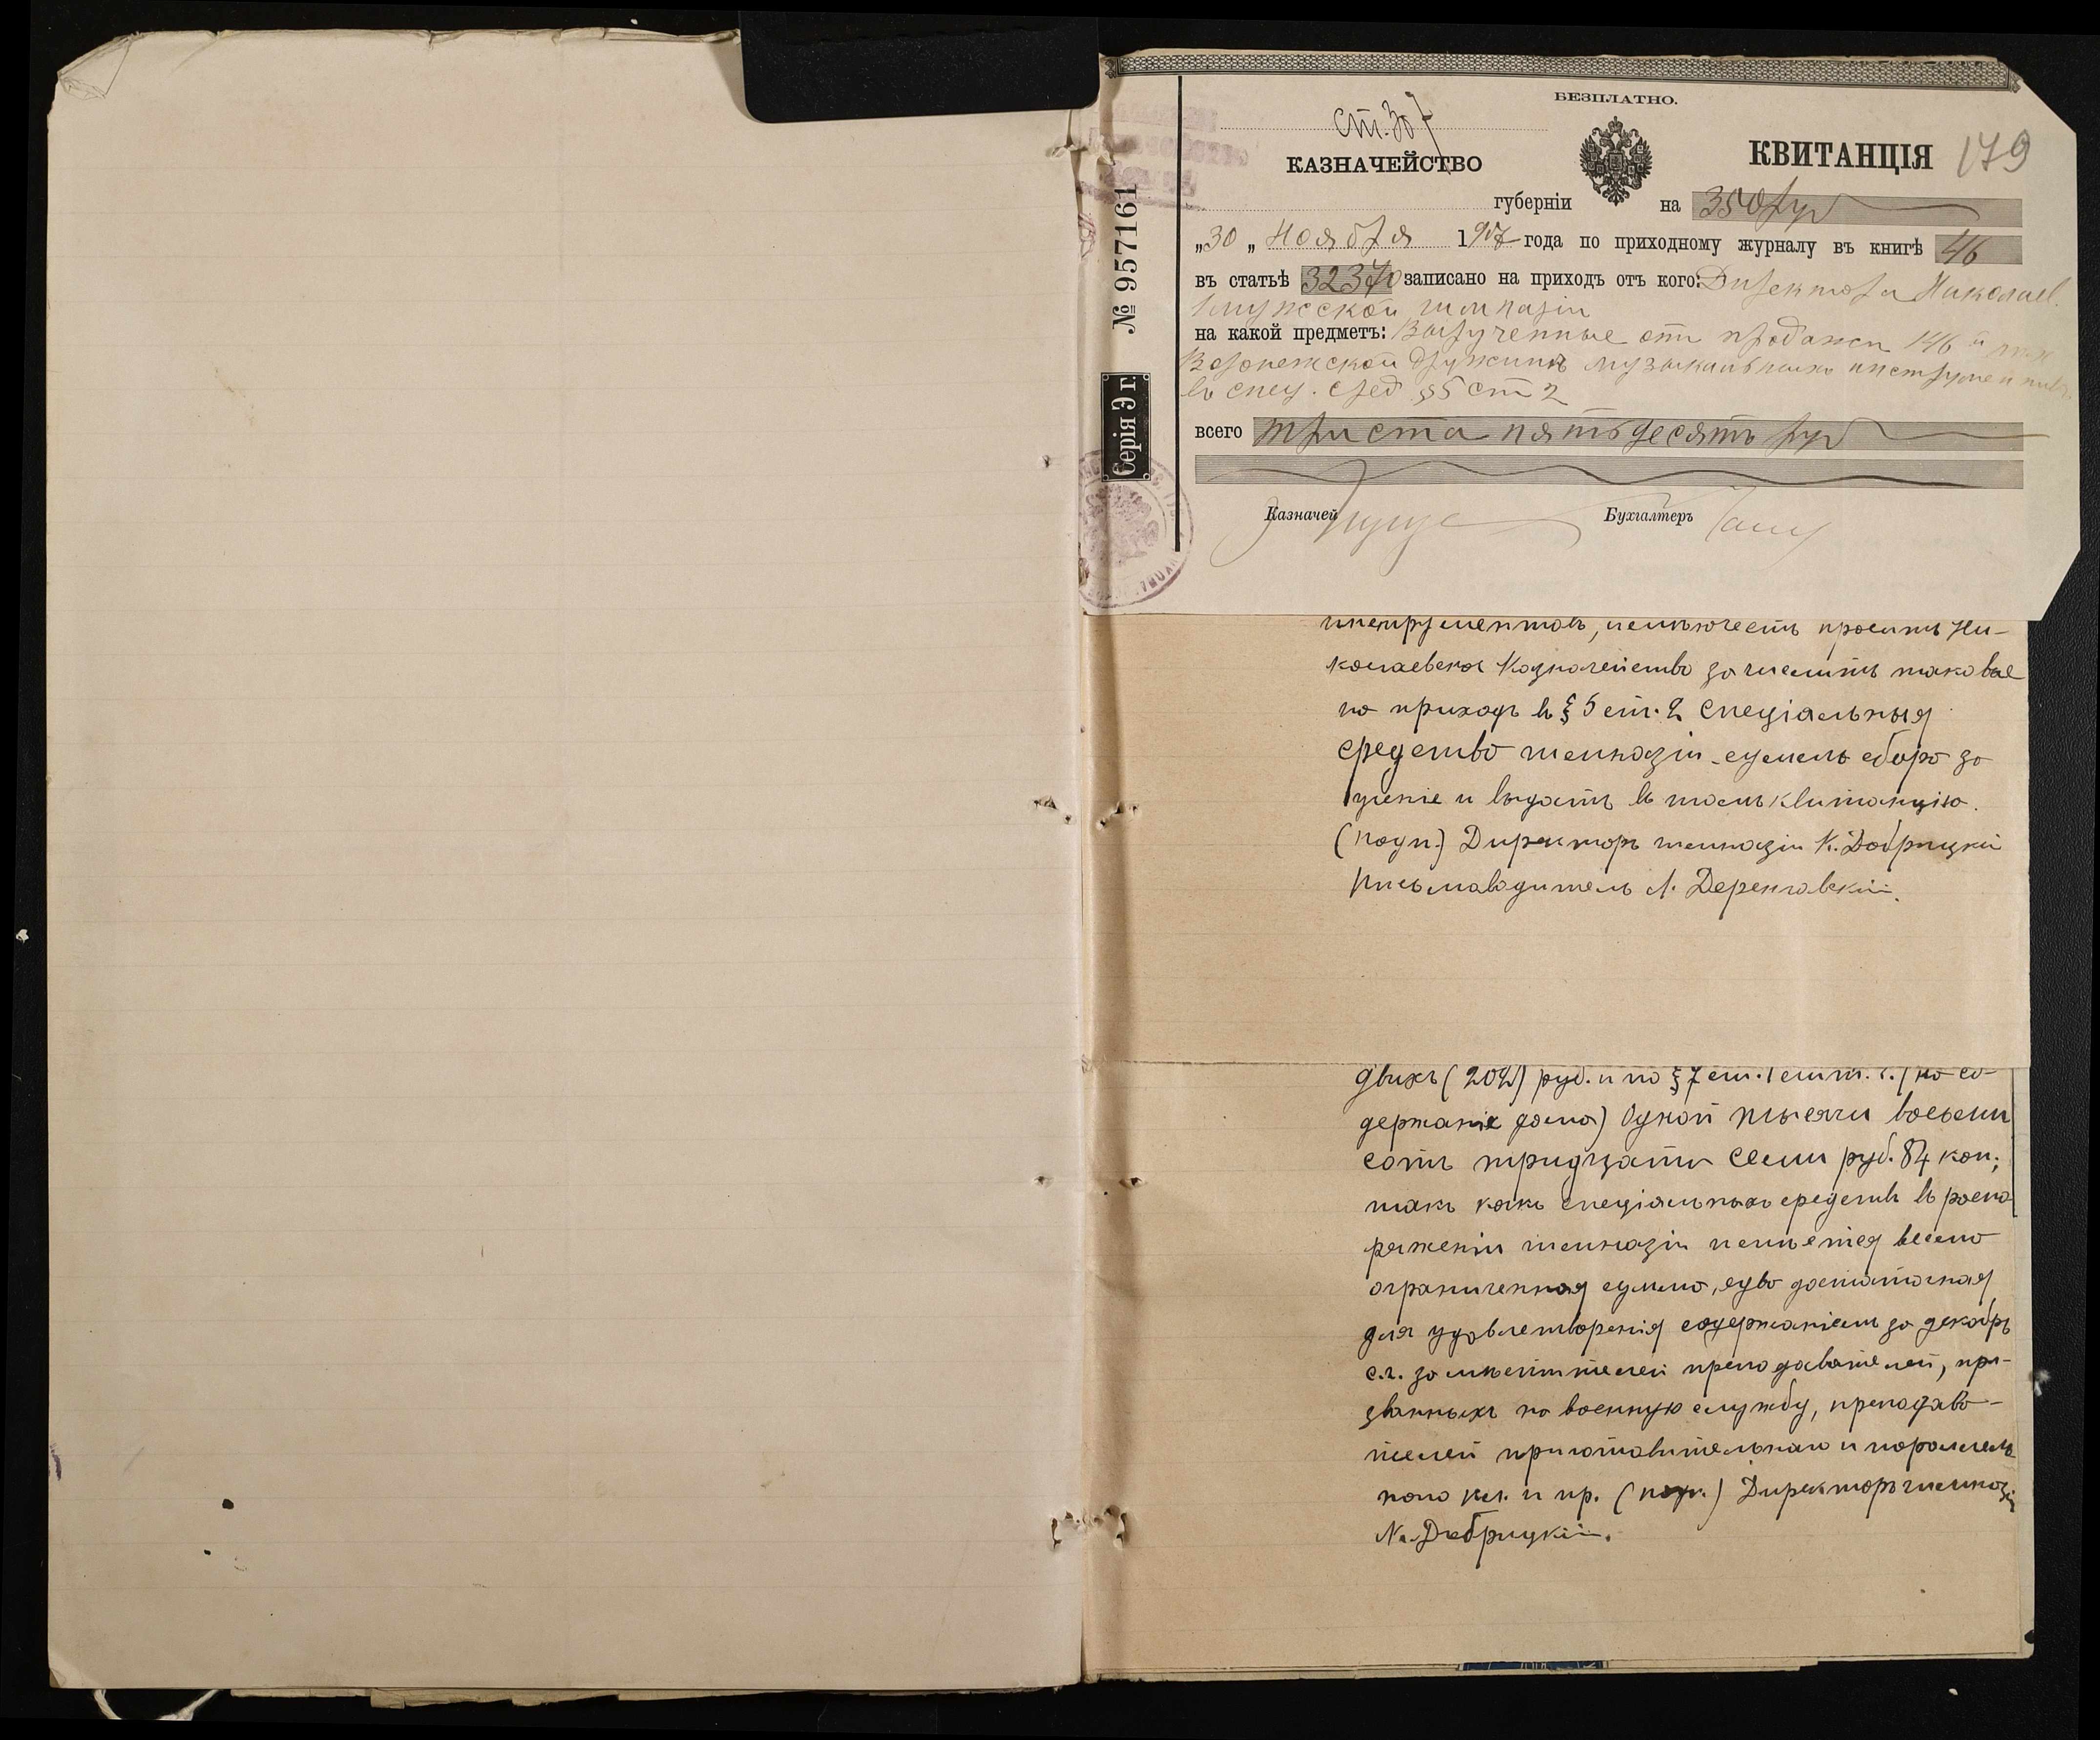 БЕЗПЛАТНО.
ст. 307
КАЗНАЧЕЙСТВО
КВИТАНЦІЯ 179
губерніи на 350 руб
„30„ Ноября 1917 года по приходному журналу въ книгѣ 46
въ статьѣ 32370 записано на приходъ отъ кого: Директора Николаев.
мужской гимназіи
на какой предметъ: Вырученные отъ продажи 146 й
Воронежской дружинѣ музыкальныхъ инструментовъ
въ спец. сред § 5 ст 2
всего триста пятьдесятъ руб
Казначей
Бухгалтеръ
№ 957161
Серія Э г.
инструментовъ, честь проситъ Ни-
колаевское Казначейство зачислить таковые
на приходъ въ § 5 ст. 2 спеціальныя
средства гимназіи - сумма сбора за
ученіе и выдать въ томъ квитанцію.
(подп.) Директоръ гимназіи К. Добрицкій
Письмоводитель Л. Деренговскій.
двихъ (202) руб. и по § 7 ст. 1 (на со-
держаніе дома) Одной тысячи восьми
сотъ тридцати семи руб. 84 коп.,
такъ какъ спеціальныхъ средствъ въ распо
ряженіи гимназіи имѣется весьма
ограниченная сумма, едва достаточная
для удовлетворенія содержаніемъ за декабрь
с.г. замѣстителей преподавателей, при-
званныхъ на военную службу, преподава-
телей приготовительнаго и параллель
наго кл. и пр. (подп.) Директоръ гимназіи
К. Добрицкій.